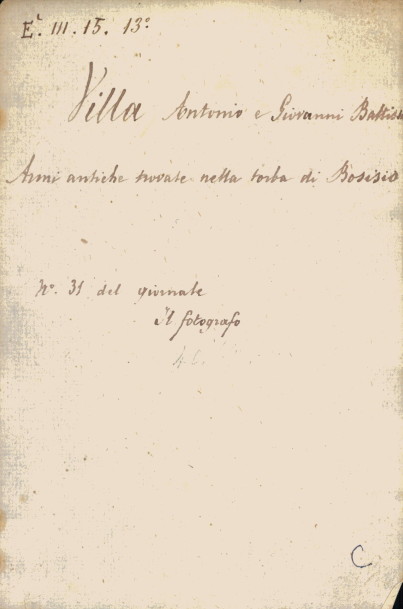 E. III. 15. 13º
Villa Antonio e Giovanni Battista
Armi antiche trovate nella torba di Bosisio
Nº. 31 del giornale
il fotografo
C